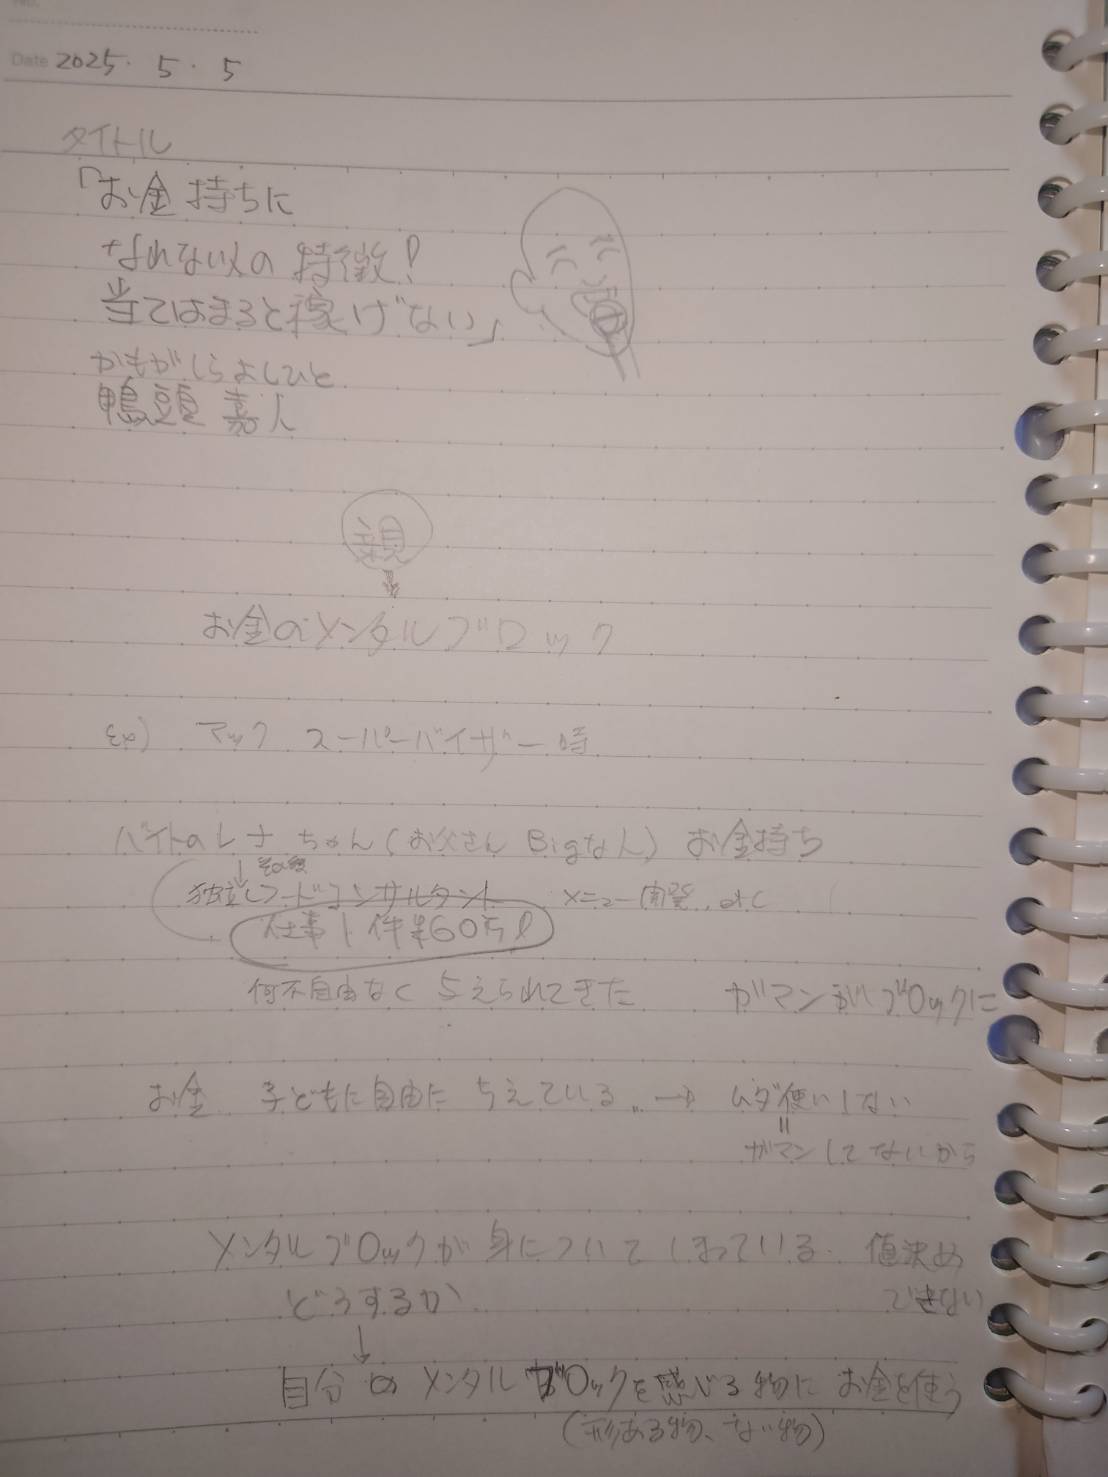 Date 2025. 5. 5
タイトル
「お金持ちに
なれない人の特徴!
当てはまると稼げない」
かもがしらよしひと
鴨頭 嘉人
親
お金のメンタルブロック
Ex) マック スーパーバイザー時
バイトのレナちゃん(お父さん Bigな人) お金持ち
↓ その後
独立しフードコンサルタント メニュー開発, etc
仕事1件 60万
何不自由なく 与えられてきた ガマンがブロックに
お金 子どもに自由に 与えている → ムダ使いしない
=
ガマンしてないから
メンタルブロックが身についてしまっている. 値決め
どうするか できない
↓
自分のメンタルブロックを感じる物にお金を使う
(形ある物、ない物)